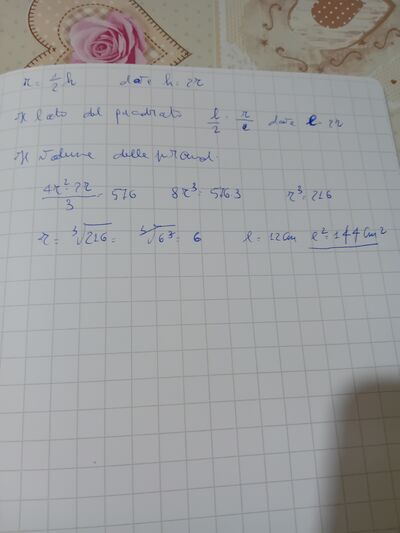 r = 1/2 h da è h = 2r
lato del quadrato l/2 = r/2 da è l = 2r
Volume della piramid.
4r² · 2r / 3 = 576 8r³ = 576 3 r³ = 216
r = ³√216 = ³√6³ = 6 l = 12 cm l² = 144 cm²